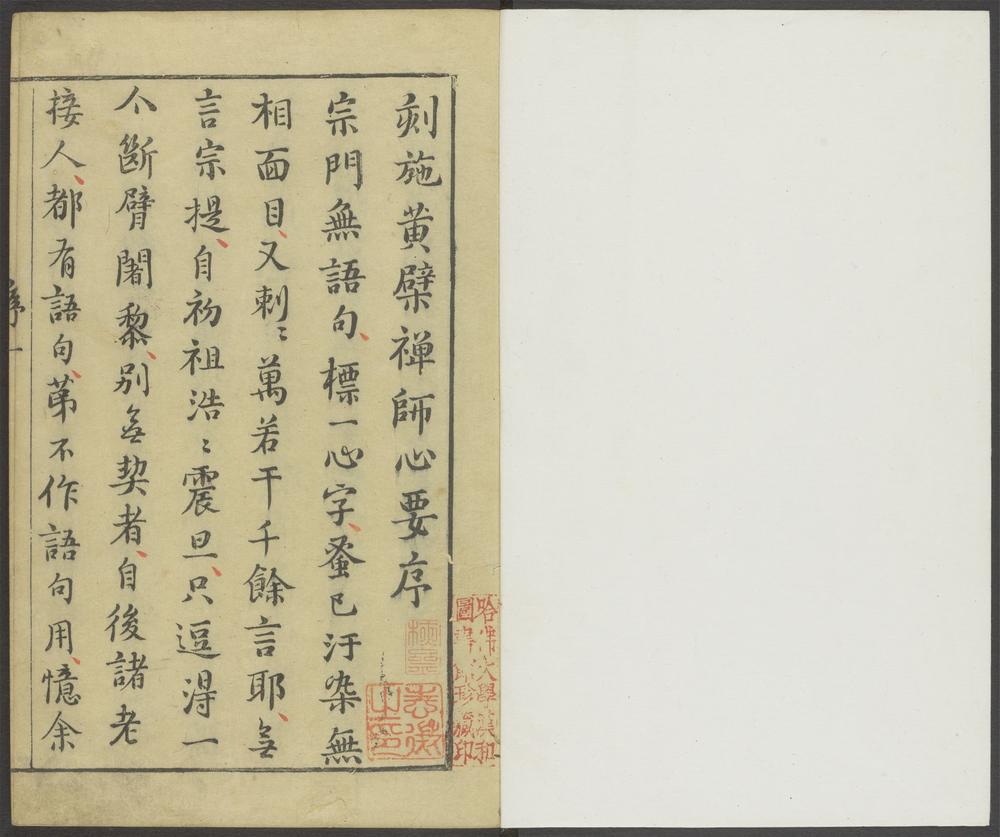 刻施黄檗禅師心要序
宗門無語句、標一心字、蚤已汙染無
相面目、又剌〻萬若干千餘言耶、无
言宗提、自初祖浩〻震旦、只逗淂一
个斷臂闍黎、别无契者、自後諸老
接人、都有語句、苐不作語句用、憶余
序一
哈佛大學漢和
圖書館珍藏印